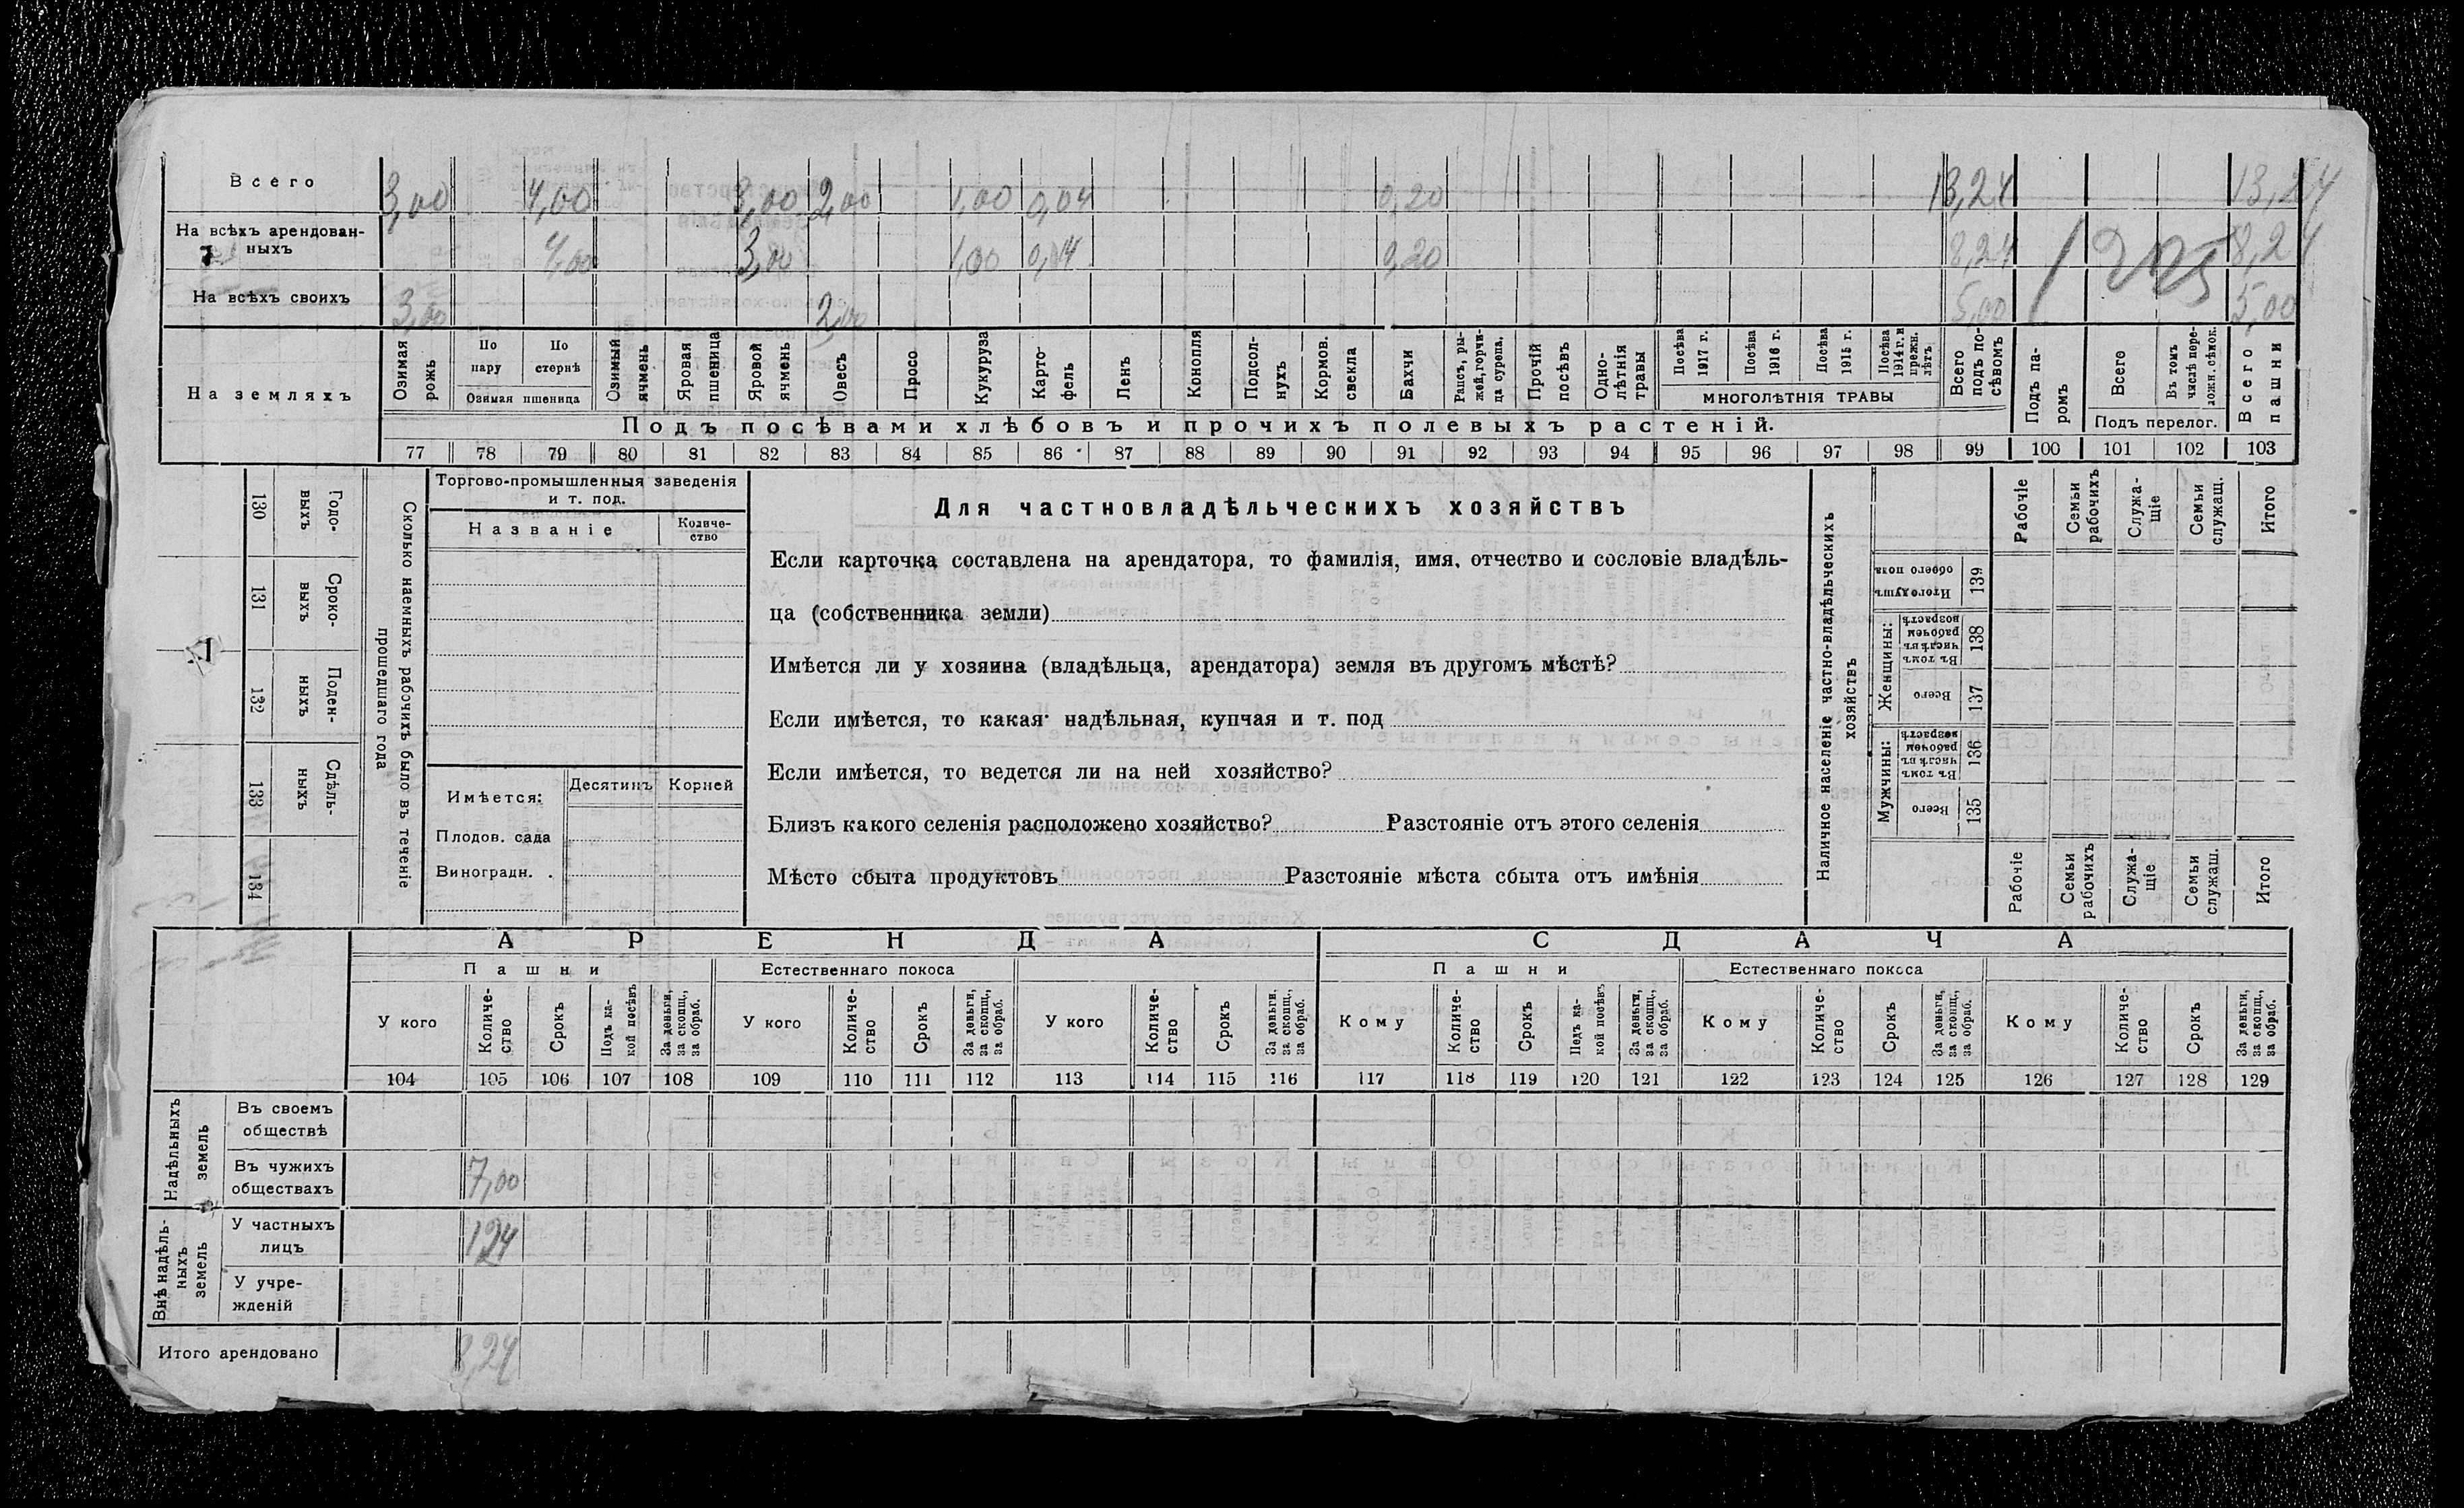 Всего 3,00 4,00 3,00 2,00 1,00 0,04 0,20 13,24 13,24
На всѣхъ арендован-
ныхъ 4,00 3,00 1,00 0,20 8,24 8,24
На всѣхъ своихъ 3,00 2,00 5,00 5,00
На земляхъ
Озимая рожь
По пару
По стернѣ
Озимая пшеница
Озимый ячмень
Яровая пшеница
Яровой ячмень
Овесъ
Просо
Кукуруза
Карто-
фель
Ленъ
Конопля
Подсол-
нухъ
Кормов. свекла
Бахчи
Рапсъ, ры-
жей, горчи-
ца сурепа.
Прочій посѣвъ
Одно-
лѣтнія травы
Посѣва 1917 г.
Посѣва 1916 г.
Посѣва 1915 г.
Посѣва 1914 г. и прежн. лѣтъ
МНОГОЛѢТНІЯ ТРАВЫ
Всего подъ по-
сѣвомъ
Подъ па-
ромъ
Всего
Въ томъ числѣ пере-
ложн. сѣнок.
Подъ перелог.
Всего пашни
Подъ посѣвами хлѣбовъ и прочихъ полевыхъ растеній.
77 78 79 80 81 82 83 84 85 86 87 88 89 90 91 92 93 94 95 96 97 98 99 100 101 102 103
130 Годо-
выхъ
131 Сроко-
выхъ
132 Поден-
ныхъ
133 Сдѣль-
ныхъ
134
Сколько наемныхъ рабочихъ было въ теченіе
прошедшаго года
Торгово-промышленныя заведенія
и т. под.
Названіе
Количе-
ство
Имѣется: Десятинъ Корней
Плодов. сада
Виноградн. .
Для частновладѣльческихъ хозяйствъ
Если карточка составлена на арендатора, то фамилія, имя, отчество и сословіе владѣль-
ца (собственника земли)
Имѣется ли у хозяина (владѣльца, арендатора) земля въ другомъ мѣстѣ?
Если имѣется, то какая: надѣльная, купчая и т. под
Если имѣется, то ведется ли на ней хозяйство?
Близъ какого селенія расположено хозяйство? Разстояніе отъ этого селенія
Мѣсто сбыта продуктовъ Разстояніе мѣста сбыта отъ имѣнія
Наличное населеніе частно-владѣльческихъ
хозяйствъ
Рабочіе
Семьи рабочихъ
Служа-
щіе
Семьи служащ.
Итого
Итого душъ обоего пола 139
Женщины:
Въ томъ числѣ въ рабочем возрастѣ 138
Всего 137
Мужчины:
Въ томъ числѣ въ рабочем возрастѣ 136
Всего 135
Рабочіе
Семьи рабочихъ
Служа-
щіе
Семьи служащ.
Итого
АРЕНДА СДАЧА
Пашни Естественнаго покоса Пашни Естественнаго покоса
У кого
Количе-
ство
Срокъ
Подъ ка-
кой посѣвъ
За деньги, за скопщ., за обраб.
У кого
Количе-
ство
Срокъ
За деньги, за скопщ., за обраб.
У кого
Количе-
ство
Срокъ
За деньги, за скопщ., за обраб.
Кому
Количе-
ство
Срокъ
Подъ ка-
кой посѣвъ
За деньги, за скопщ., за обраб.
Кому
Количе-
ство
Срокъ
За деньги, за скопщ., за обраб.
Кому
Количе-
ство
Срокъ
За деньги, за скопщ., за обраб.
104 105 106 107 108 109 110 111 112 113 114 115 116 117 118 119 120 121 122 123 124 125 126 127 128 129
Надѣльныхъ
земель
Въ своемъ
обществѣ
Въ чужихъ
обществахъ 7,00
Внѣ надѣль-
ныхъ
земель
У частныхъ
лицъ 1,24
У учре-
жденій
Итого арендовано 8,24